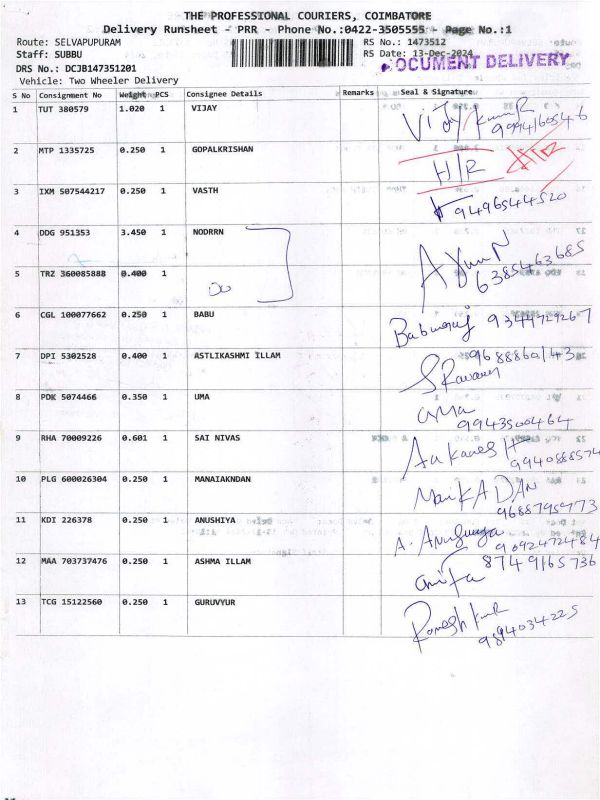 THE PROFESSIONAL COURIERS, COIMBATORE
Delivery Runsheet - PRR - Phone No.:0422-3505555 - Page No.:1
Route: SELVAPUPURAM RS No.: 1473512
Staff: SUBBU RS Date: 13-Dec-2024
DOCUMENT DELIVERY
DRS No.: DCJB147351201
Vehicle: Two Wheeler Delivery
S No Consignment No Weight PCS Consignee Details Remarks Seal & Signature
1 TUT 380579 1.020 1 VIJAY Vijay Kumar 9994160546
2 MTP 1335725 0.250 1 GOPALKRISHAN H/R H/R
3 IXM 507544217 0.250 1 VASTH 9496544520
4 DDG 951353 3.450 1 NODRRN Arun N
5 TRZ 360085888 0.400 1 Do 6385463685
6 CGL 100077662 0.250 1 BABU Baburaj 9344729267
7 DPI 5302528 0.400 1 ASTLIKASHMI ILLAM 9688860143
8 PDK 5074466 0.350 1 UMA uma 9943500464
9 RHA 70009226 0.601 1 SAI NIVAS 9940888574
10 PLG 600026304 0.250 1 MANAIAKNDAN ManiKADAN 9688795973
11 KDI 226378 0.250 1 ANUSHIYA A. Anusuya 9092472484
12 MAA 703737476 0.250 1 ASHMA ILLAM 8749165736
13 TCG 15122560 0.250 1 GURUVYUR Ramesh Kumar 9894034225